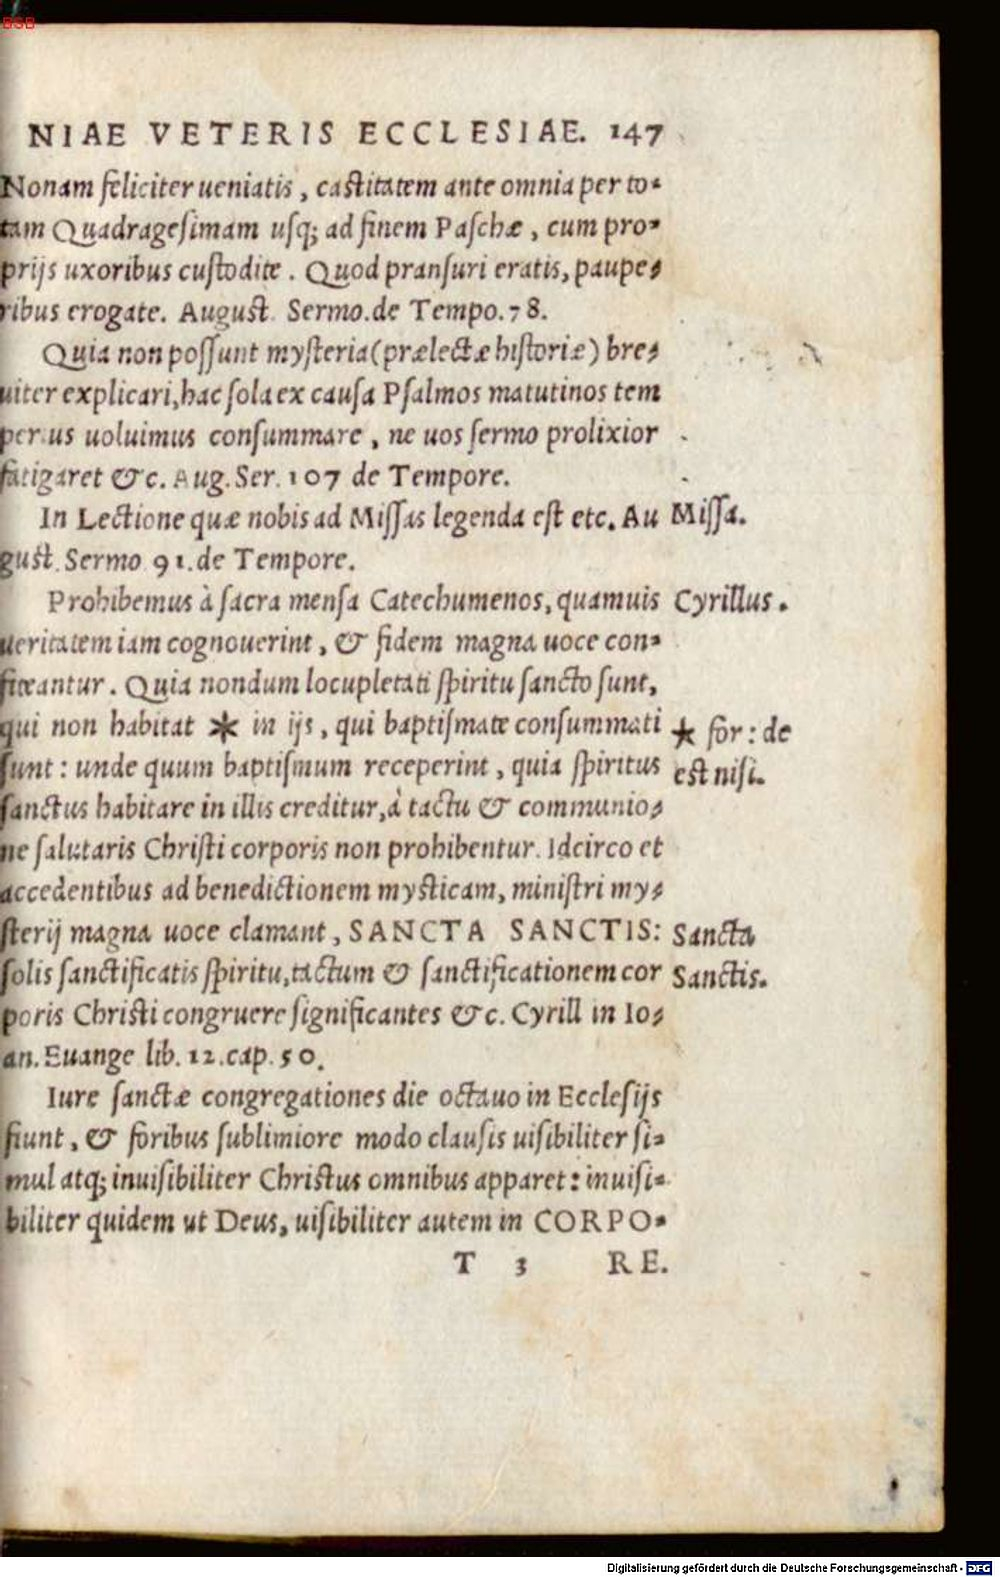 BSB
NIAE VETERIS ECCLESIAE. 147
Nonam feliciter ueniatis, castitatem ante omnia per to-
tam Quadragesimam usq; ad finem Paschæ, cum pro-
prijs uxoribus custodite. Quod pransuri eratis, paupe-
ribus erogate. August. Sermo. de Tempo. 78.
Quia non possunt mysteria (prælectæ historiæ) bre-
uiter explicari, hac sola ex causa Psalmos matutinos tem
perius uoluimus consummare, ne uos sermo prolixior
fatigaret &c. Aug. Ser. 107 de Tempore.
In Lectione quæ nobis ad Missas legenda est etc. Au
Missa.
gust. Sermo 91. de Tempore.
Prohibemus à sacra mensa Catechumenos, quamuis
Cyrillus.
ueritatem iam cognouerint, & fidem magna uoce con-
fiteantur. Quia nondum locupletati spiritu sancto sunt,
qui non habitat * in ijs, qui baptismate consummati
* for: de
sunt: unde quum baptismum receperint, quia spiritus
est nisi.
sanctus habitare in illis creditur, à tactu & communio-
ne salutaris Christi corporis non prohibentur. Idcirco et
accedentibus ad benedictionem mysticam, ministri my-
sterij magna uoce clamant, SANCTA SANCTIS:
Sancta
solis sanctificatis spiritu, tactum & sanctificationem cor
Sanctis.
poris Christi congruere significantes &c. Cyrill in Io-
an. Euange lib. 12. cap. 50.
Iure sanctæ congregationes die octauo in Ecclesijs
fiunt, & foribus sublimiore modo clausis uisibiliter si-
mul atq; inuisibiliter Christus omnibus apparet: inuisi-
biliter quidem ut Deus, uisibiliter autem in CORPO-
T 3 RE.
Digitalisierung gefördert durch die Deutsche Forschungsgemeinschaft - DFG